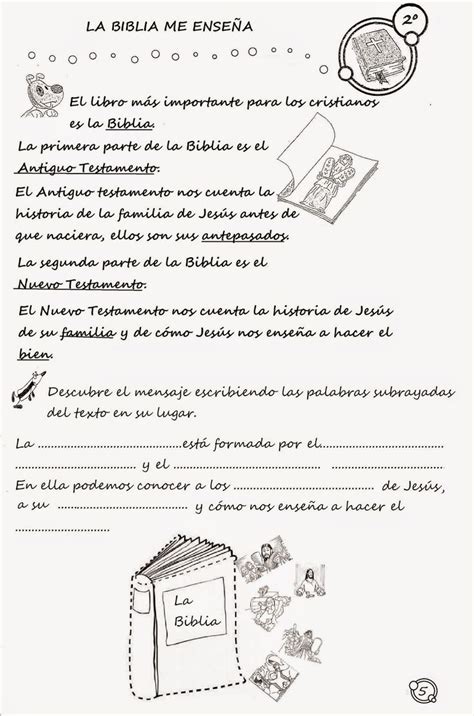 LA BIBLIA ME ENSEÑA
2º
El libro más importante para los cristianos
es la Biblia.
La primera parte de la Biblia es el
Antiguo Testamento.
El Antiguo testamento nos cuenta la
historia de la familia de Jesús antes de
que naciera, ellos son sus antepasados.
La segunda parte de la Biblia es el
Nuevo Testamento.
El Nuevo Testamento nos cuenta la historia de Jesús
de su familia y de cómo Jesús nos enseña a hacer el
bien.
Descubre el mensaje escribiendo las palabras subrayadas
del texto en su lugar.
La ........................................está formada por el..................................
.................................. y el ......................................... ...............................
En ella podemos conocer a los ....................................... de Jesús,
a su .................................... y cómo nos enseña a hacer el
..........................
La
Biblia
5